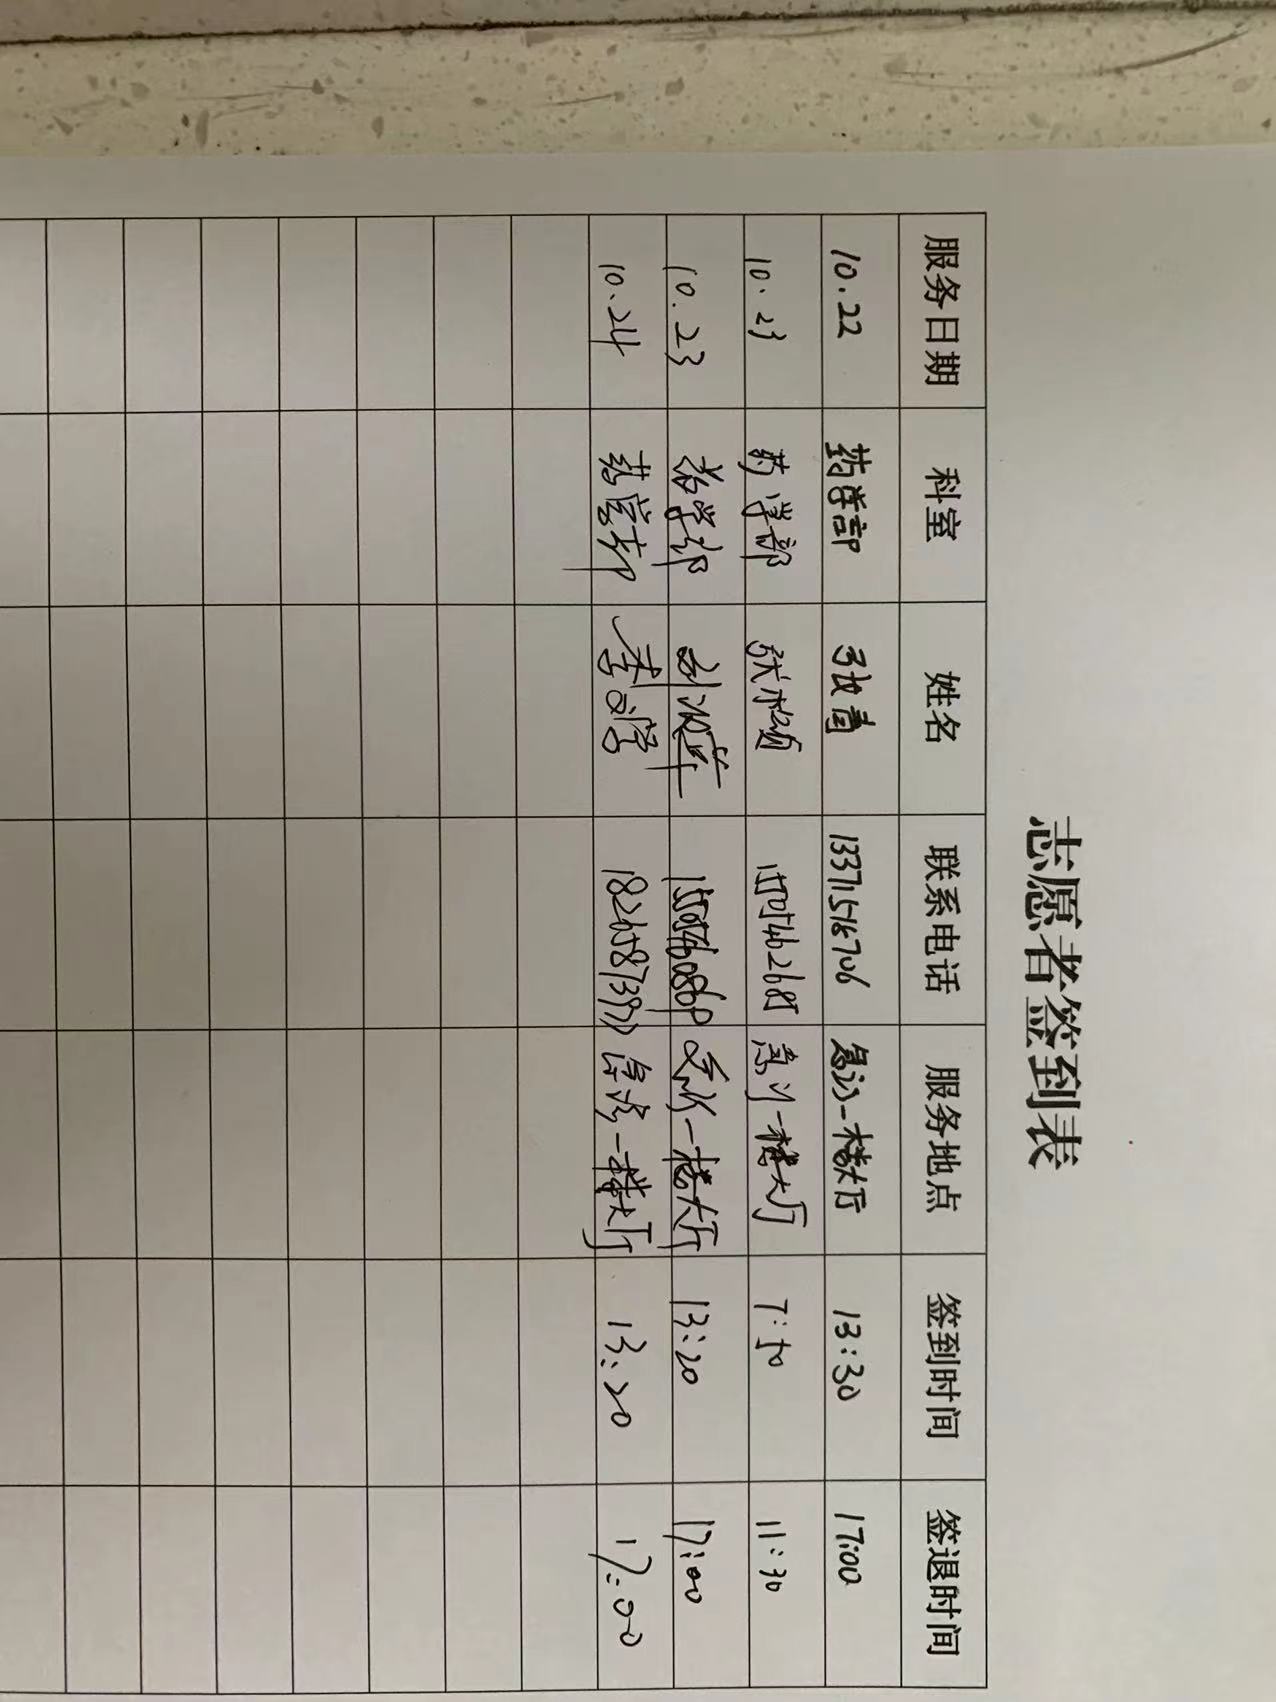 志愿者签到表
服务日期 科室 姓名 联系电话 服务地点 签到时间 签退时间
10.22 药学部 张青 13371518706 急诊一楼大厅 13:30 17:00
10.23 药学部 张 急诊一楼大厅 7:50 11:30
10.23 药学部 刘 一楼大厅 13:20 17:00
10.24 药学部 李 一楼大厅 13:20 17:00